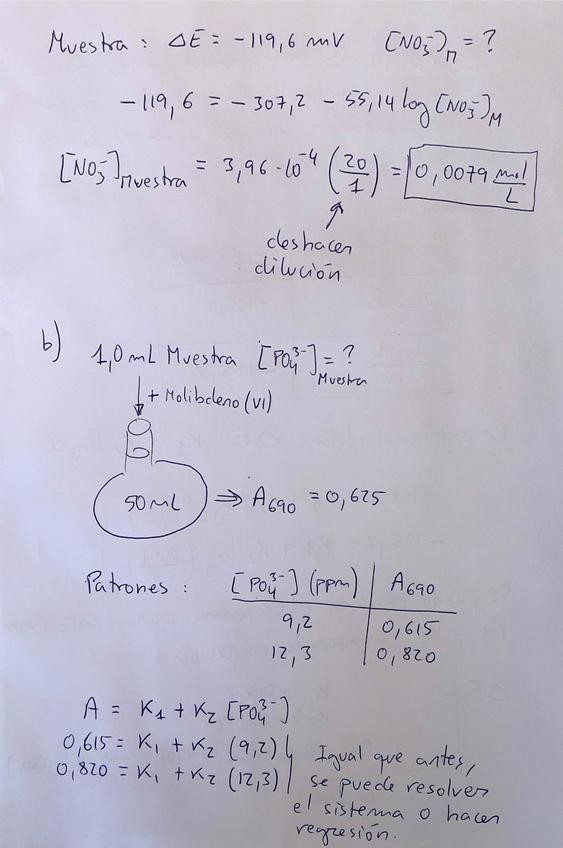 Muestra : ΔE = -119,6 mV [NO₃⁻]ₘ = ?
-119,6 = -307,2 - 55,14 log [NO₃⁻]M
[NO₃⁻]Muestra = 3,96 · 10⁻⁴ (20/1) = 0,0079 mol/L
deshacer
dilución
b) 1,0 mL Muestra [PO₄³⁻]Muestra = ?
+ Molibdeno (VI)
50 mL ⇒ A₆₉₀ = 0,625
Patrones : [PO₄³⁻] (ppm) A₆₉₀
9,2 0,615
12,3 0,820
A = K₁ + K₂ [PO₄³⁻]
0,615 = K₁ + K₂ (9,2)
0,820 = K₁ + K₂ (12,3)
Igual que antes,
se puede resolver
el sistema o hacer
regresión.